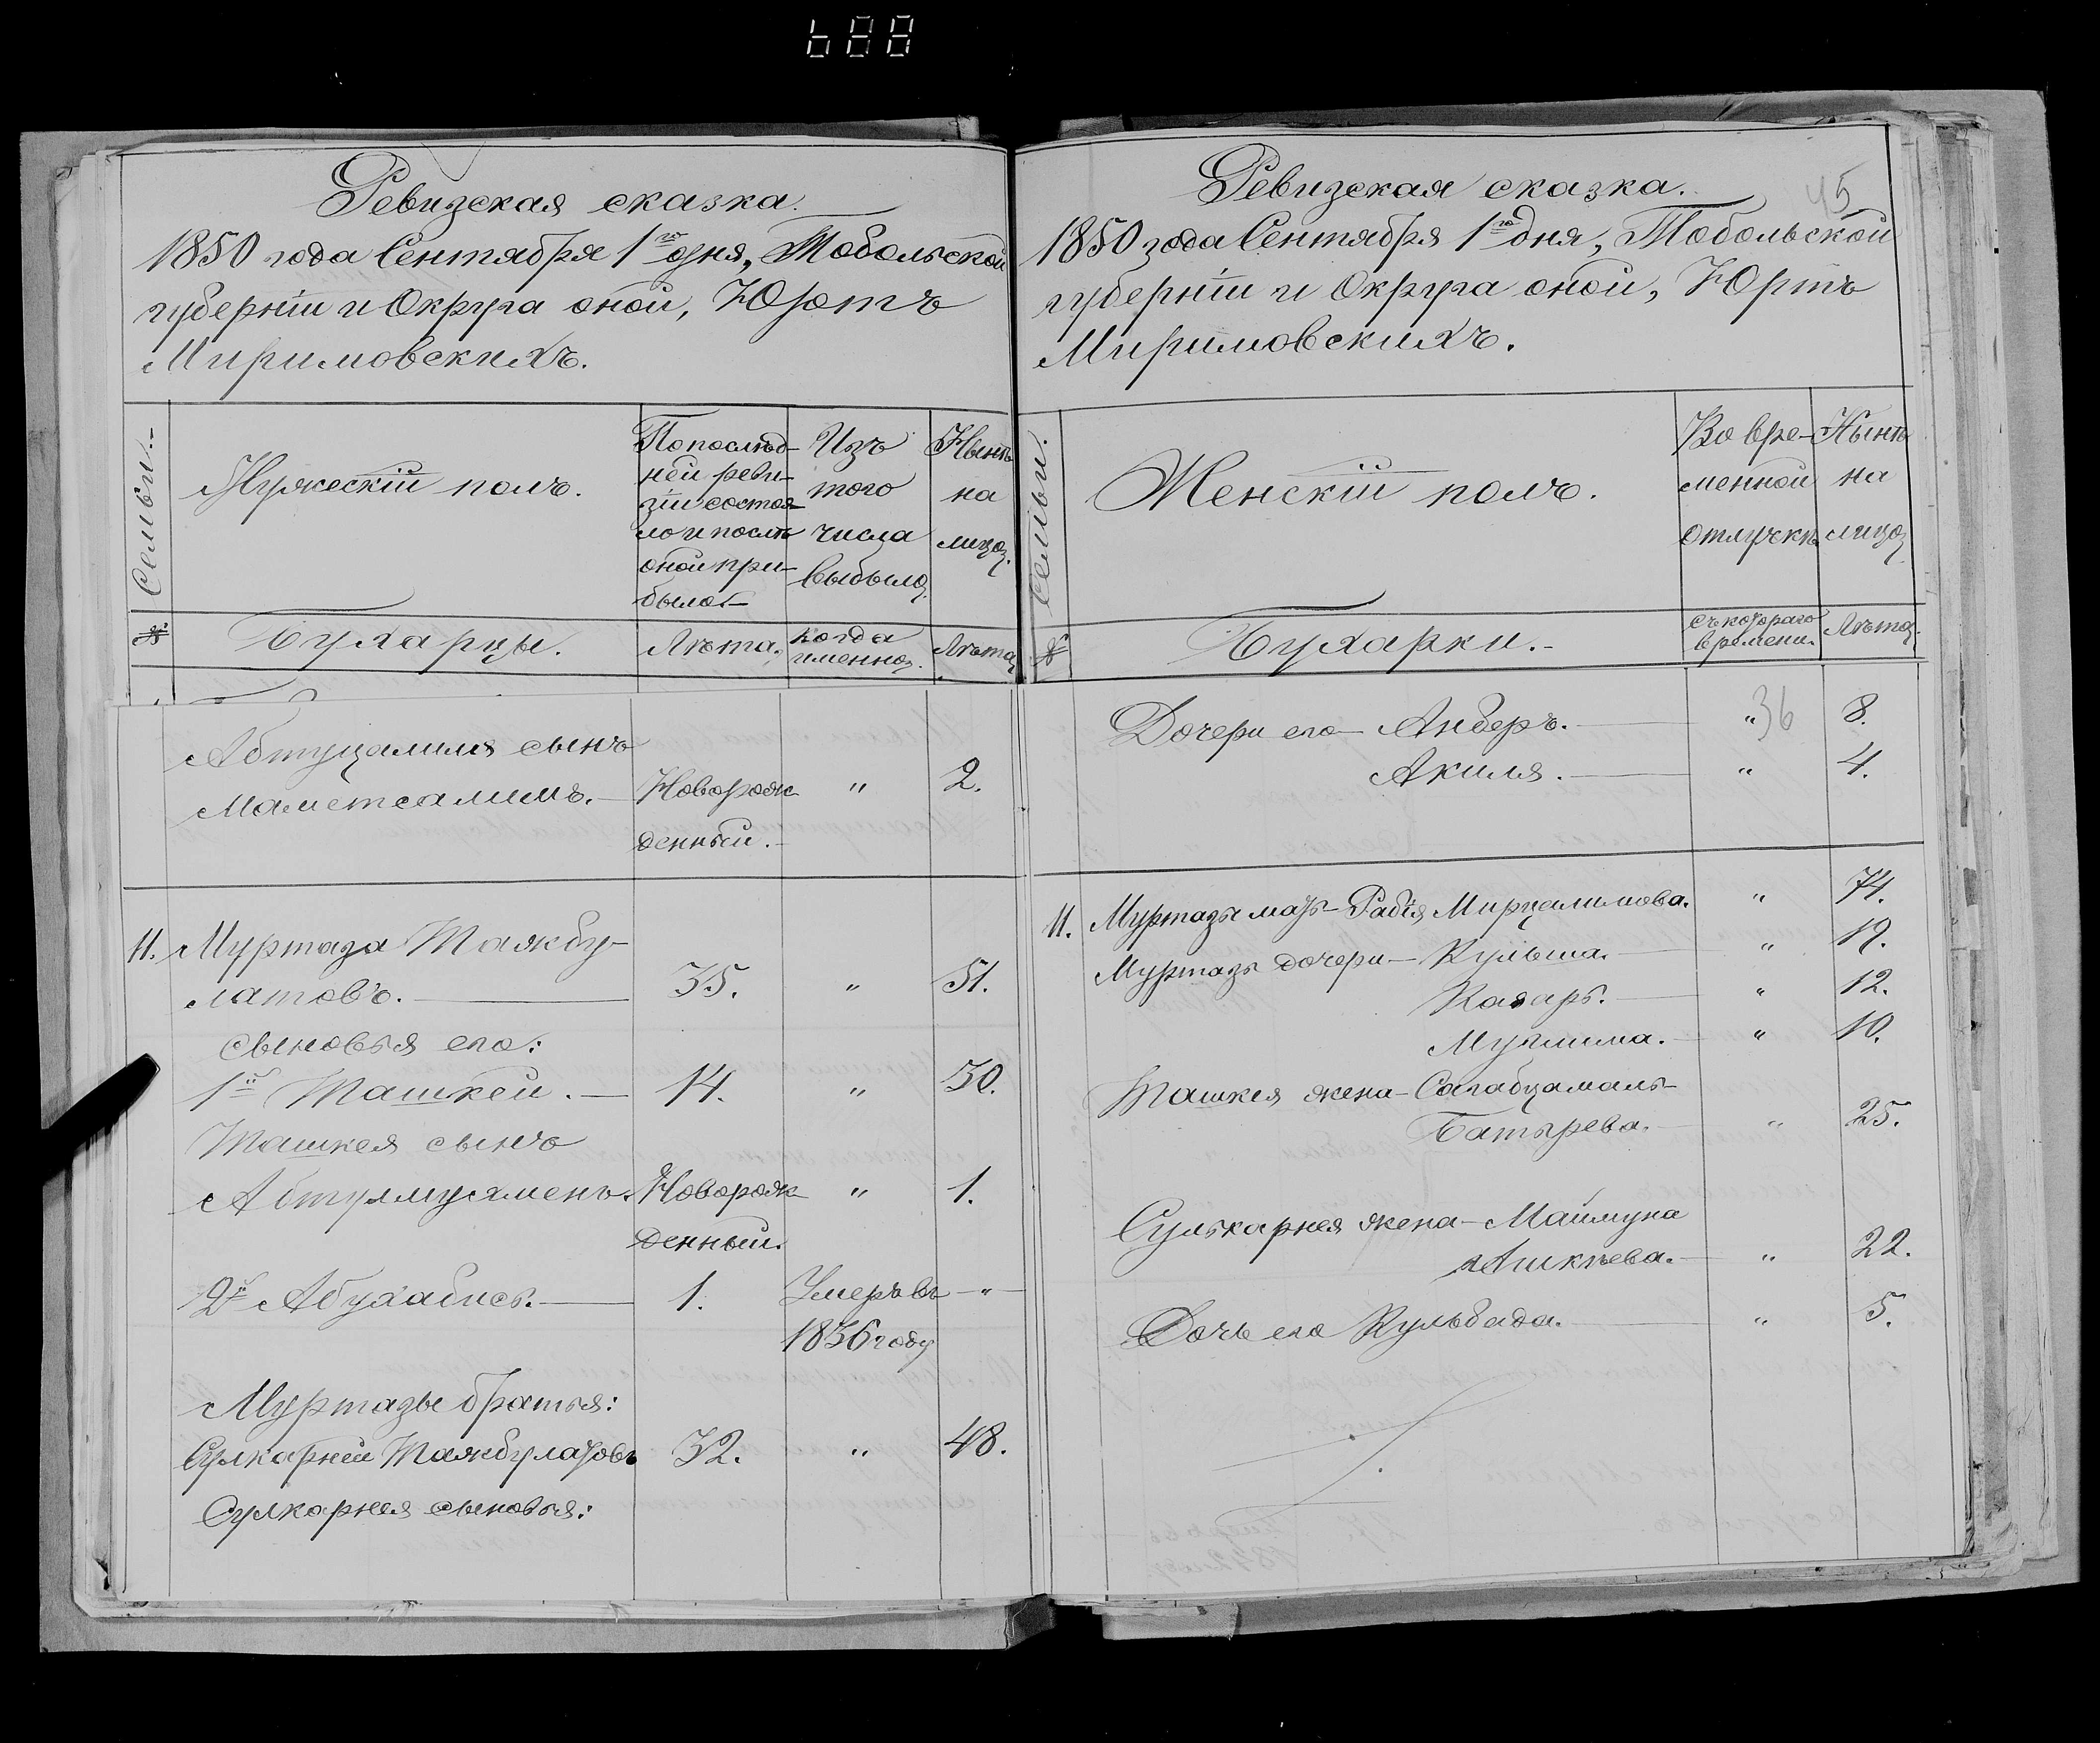 688
Ревизская сказка.
1850 года Сентября 1го дня, Тобольской
губернiи и Округа оной, Юртъ
Миримовскихъ.
Семьи.
Мужескiй полъ.
По послѣд-
ней реви-
зiи состоя-
ло и послѣ
оной при-
было
Изъ
того
числа
выбыло.
Нынѣ
на
лицо.
№
Бухарцы.
Лѣта.
когда
именно.
Лѣта.
Абтуцалиля сынъ
Маметсалимъ. Новорож " 2.
денный.
11. Муртаза Таяжбу-
латовъ. 35. " 51.
сыновья его:
1й Ташкей. 14. " 30.
Ташкея сынъ
Абтулмуамень. Новорож " 1.
денный.
2й Абухабисъ. 1. Умеръ въ "
1836 году
Муртазы братья:
Сулкарней Таяжбулатовъ 32. " 48.
Сулкарнея сыновья:
45
Ревизская сказка.
1850 года Сентября 1го дня, Тобольской
губернiи и Округа оной, Юртъ
Миримовскихъ.
Семьи.
Женскiй полъ.
Во вре-
менной
отлучкѣ
Нынѣ
на
лицо.
№
Бухарки.
съ котораго
времени.
Лѣта.
Дочери его Анберъ. " 36 8.
Акиля. " 4.
11. Муртазы мать Рабiя Мирцалимова. " 74.
Муртазы дочери Кульша. " 19.
Каааръ. " 12.
Муглима. " 10.
Ташкея жена Сагабцамалъ
Батырева. " 25.
Сулькарнея жена Маймуна
Ашкѣева. " 22.
Дочь его Кульбада. " 5.